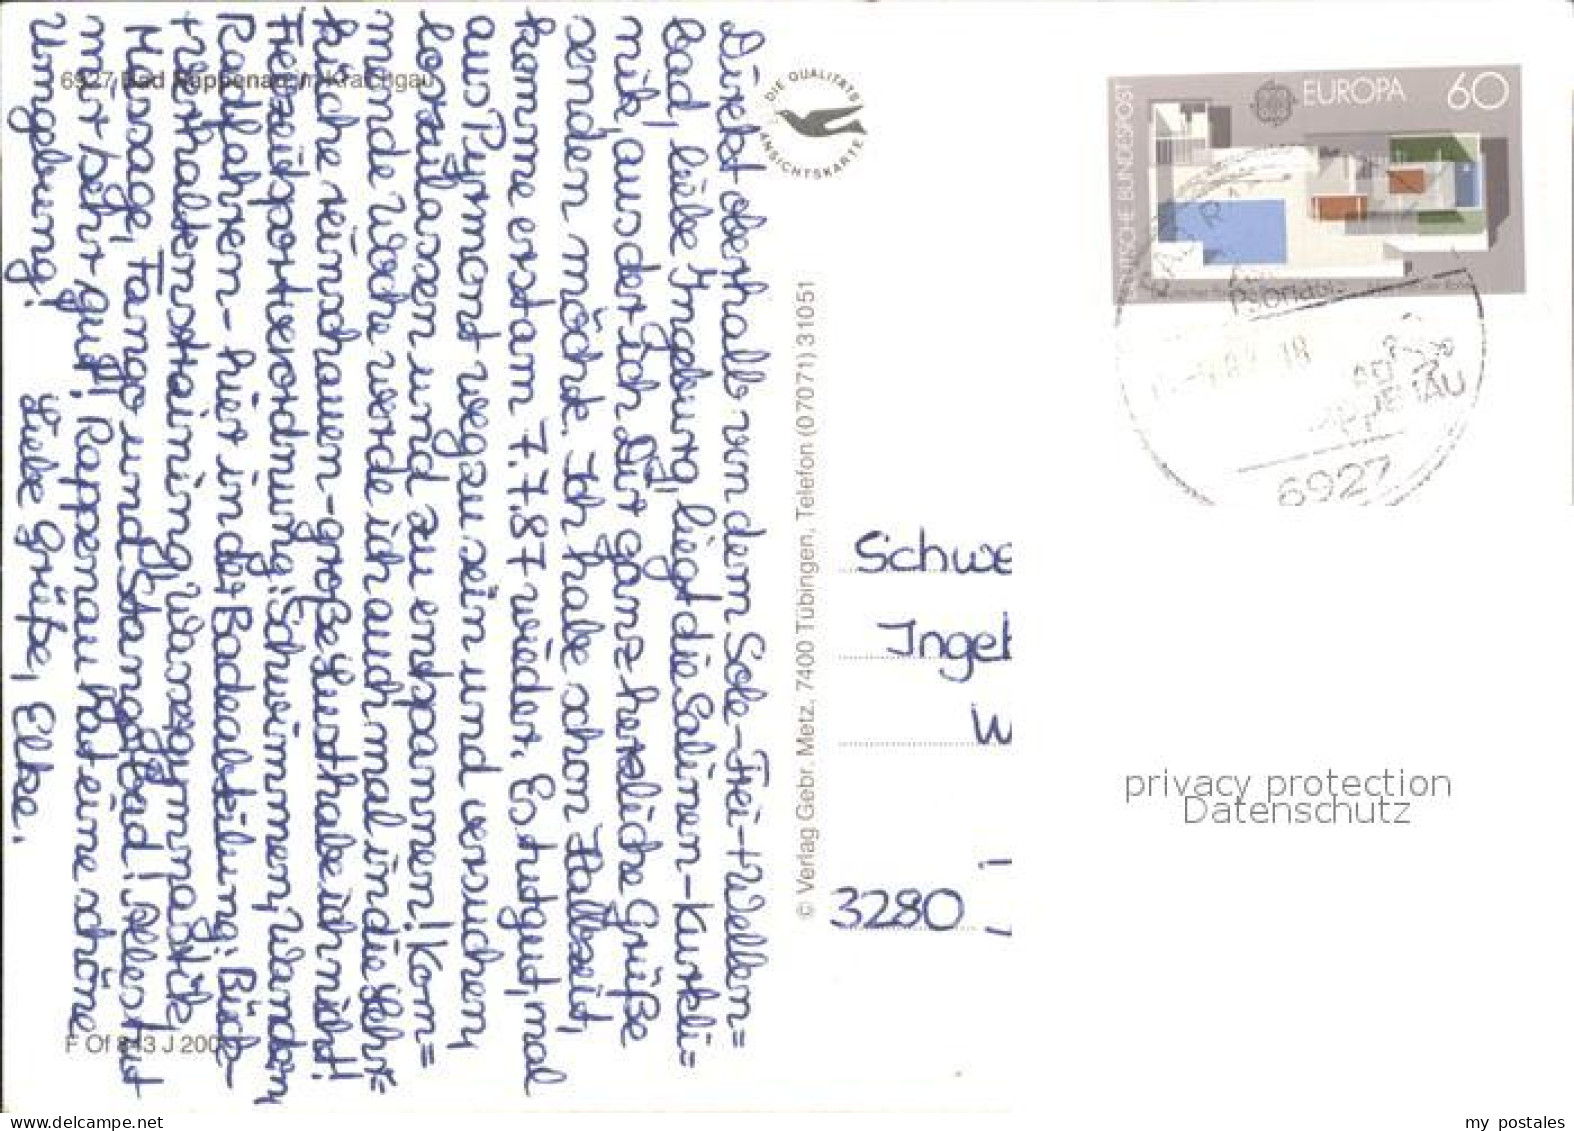 Direkt oberhalb von dem Sole-Frei-+Wellen=
bad, liebe Ingeburg, liegt die Salinen-Kurkli=
nik, aus der ich Dir ganz herzliche Grüße
senden möchte. Ich habe schon Halbzeit,
komme erst am 7.7.87 wieder. Es tut gut, mal
aus Pyrmont weg zu sein und versuchen,
loszulassen und zu entspannen! Kom=
mende Woche werde ich auch mal in die Lehr=
küche reinschauen-große Lust habe ich nicht!
Freizeitsportverordnung: Schwimmen, Wandern,
Radfahren-hier in der Badeabteilung: Rück-
+verhaltenstraining, Wassergymnastik,
Massage, Fango und Stangerbad! Alles tut
mir sehr gut! Rappenau hat eine schöne
Umgebung!
Liebe Grüße, Elke.
6927 Bad Rappenau im Kraichgau
DIE QUALITÄTS
ANSICHTSKARTE
© Verlag Gebr. Metz, 7400 Tübingen, Telefon (07071) 31051
DEUTSCHE BUNDESPOST
EUROPA 60
6927
Schwe
Inget
W
3280
privacy protection
Datenschutz
my postales
www.delcampe.net